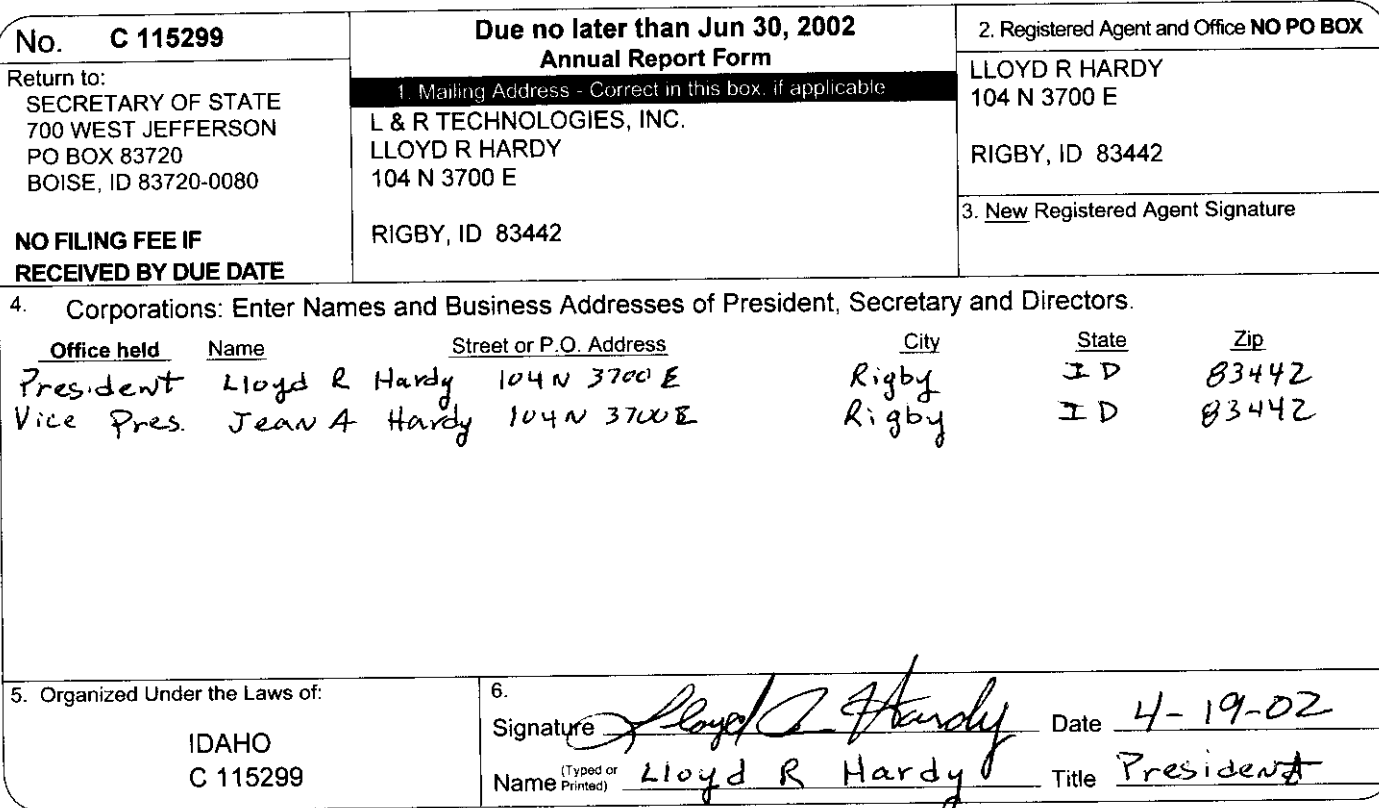 No. C 115299
Return to:
SECRETARY OF STATE
700 WEST JEFFERSON
PO BOX 83720
BOISE, ID 83720-0080
NO FILING FEE IF
RECEIVED BY DUE DATE
Due no later than Jun 30, 2002
Annual Report Form
1. Mailing Address - Correct in this box, if applicable
L & R TECHNOLOGIES, INC.
LLOYD R HARDY
104 N 3700 E
RIGBY, ID 83442
2. Registered Agent and Office NO PO BOX
LLOYD R HARDY
104 N 3700 E
RIGBY, ID 83442
3. New Registered Agent Signature
4. Corporations: Enter Names and Business Addresses of President, Secretary and Directors.
Office held Name Street or P.O. Address City State Zip
President Lloyd R Hardy 104 N 3700 E Rigby ID 83442
Vice Pres. Jean A Hardy 104 N 3700 E Rigby ID 83442
5. Organized Under the Laws of:
IDAHO
C 115299
6.
Signature Lloyd R Hardy Date 4-19-02
Name (Typed or Printed) Lloyd R Hardy Title President